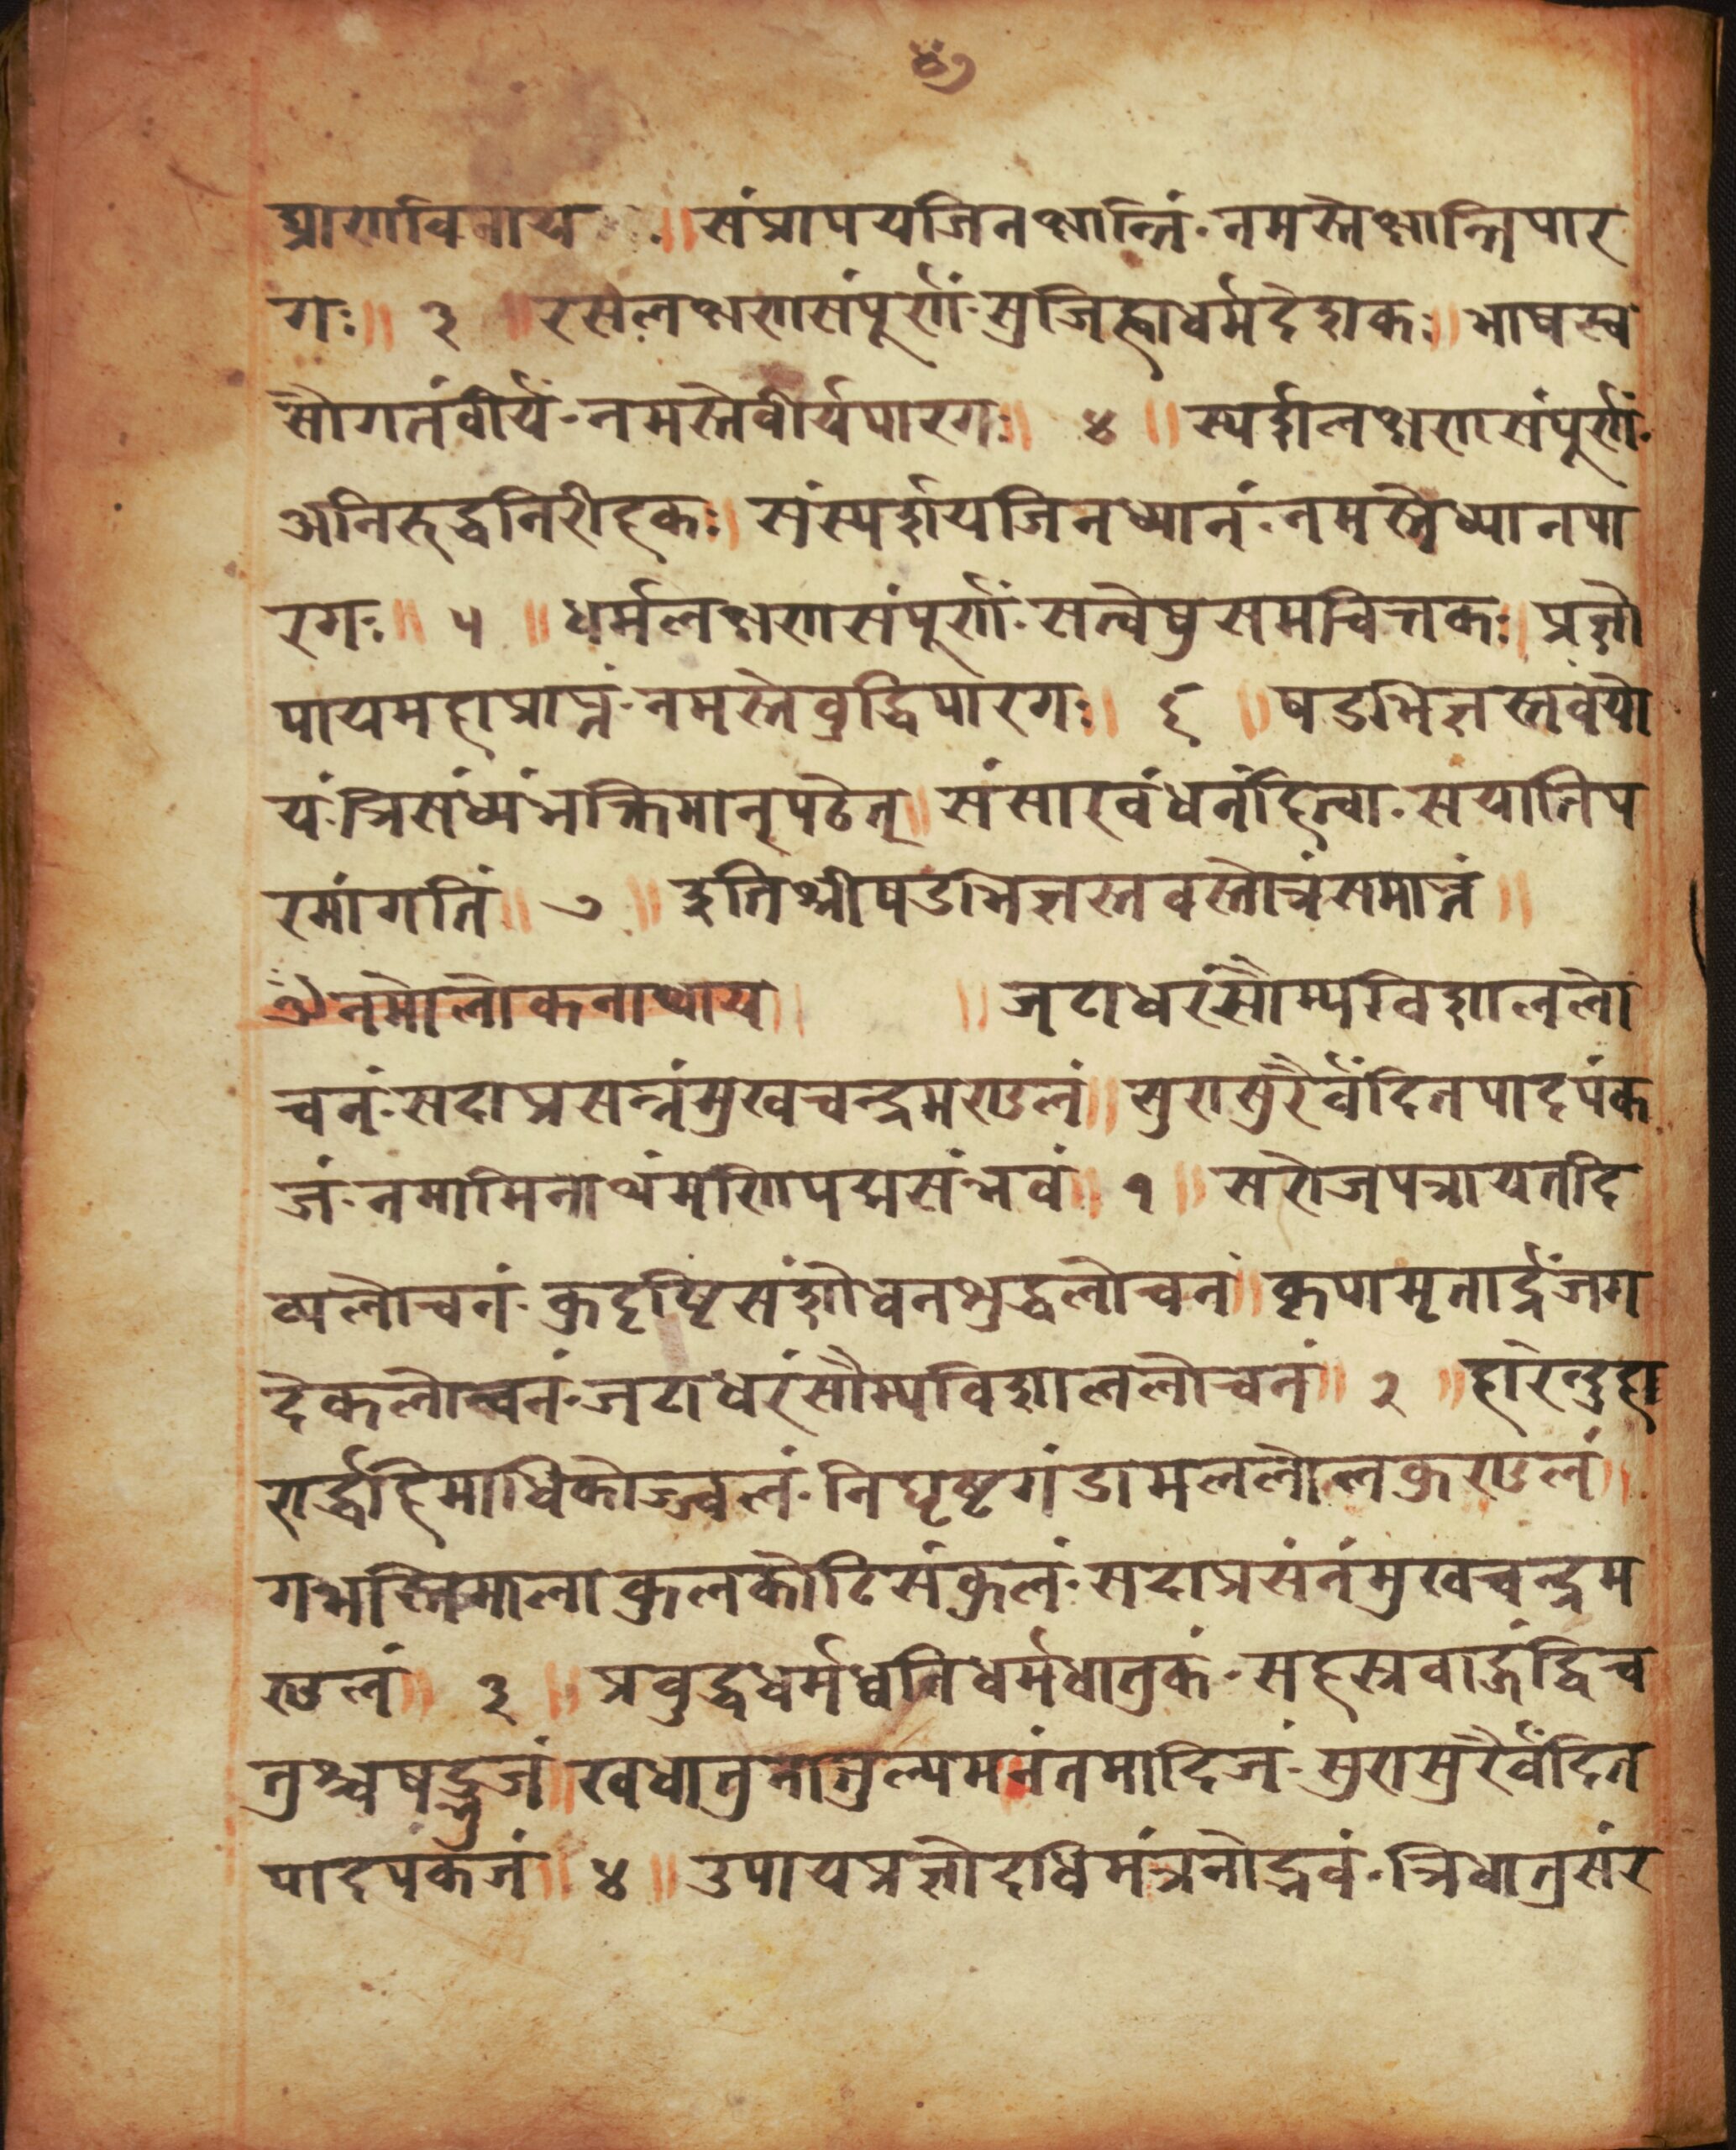 ४७
घ्राणविनाय ॥ संप्रापयजिनक्षान्तिं·नमस्तेक्षान्तिपार
गः॥ ३ ॥ रसलक्षणसंपूर्णां·सुजिह्वाधर्मदेशकः॥ भाषस्व
सौगतंवीर्यं·नमस्तेवीर्यपारगः॥ ४ ॥ स्पर्शलक्षणसंपूर्णां·
अनिरुद्धनिरीहकः॥ संस्पर्शयजिनध्यानं·नमस्तेध्यानपा
रगः॥ ५ ॥ धर्मलक्षणसंपूर्णां·सत्वेषुसमचित्तकः॥ प्रज्ञो
पायमहाप्राप्तं·नमस्तेवुद्धिपारगः॥ ६ ॥ षडभिज्ञस्तवंयो
यं·त्रिसंध्यंभक्तिमान्पठेत्॥ संसारवंधनंहित्वा·सयातिप
रमांगतिं॥ ७ ॥ इतिश्रीषडभिज्ञस्तवस्तोत्रंसमाप्तं॥
ॐनमोलोकनाथाय॥ ॥ जटाधरंसौम्यविशाललो
चनं·सदाप्रसन्नंमुखचन्द्रमण्डलं॥ सुरासुरैर्वंदितपादपंक
जं·नमामिनाथंमणिपद्मसंभवं॥ १ ॥ सरोजपत्रायतदि
व्यलोचनं·कुदृष्टिसंशोधनशुद्धलोचनं॥ कृपामृतार्द्रंजग
देकलोचनं·जटाधरंसौम्यविशाललोचनं॥ २ ॥ हारेन्दुहा
रार्द्धहिमाधिकोज्वलं·निघृष्टगंडामललोलकुण्डलं॥
गभस्तिमालाकुलकोटिसंकुलं·सदाप्रसंनंमुखचन्द्रम
ण्डलं॥ ३ ॥ प्रवुद्धधर्मध्वनिधर्मधातुकं·सहस्रवाहुंद्विच
तुश्चषद्भुजं॥ खधातुनातुल्यमनंतमादिजं·सुरासुरैर्वंदित
पादपंकजं॥ ४ ॥ उपायप्रज्ञोदधिमंत्रनोद्भवं·त्रिधातुसंर